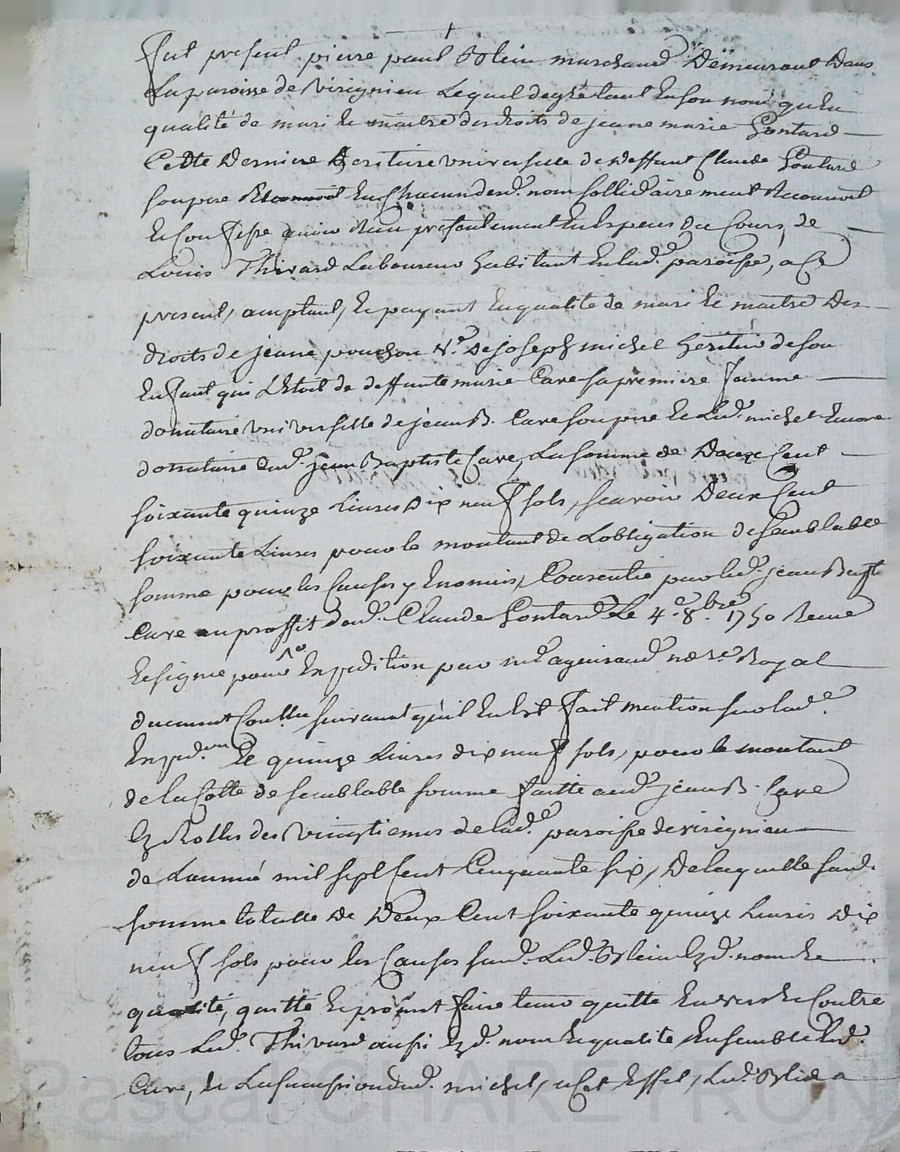 Fut present pierre paul Blein marchand Demeurant Dans
La paroisse de virignieu Lequel degré tant En son nom qu'en
qualité de mari Et maitre des droits de jeane marie Gontard
Cette Derniere heritiere universelle de deffunt Claude Gontard
son pere En Chacun desd. nom sollidairement Reconnoit
Et Confesse avoir Reçu presentement En Espece du Cours, de
Louis Thivard Laboureur habitant En lad.e paroisse, a Ce
present, acceptant, Et payant En qualité de mari Et maitre Des
droits de jeane ponchon V.e De joseph michel heritier de son
Enfant qui L'Etoit de deffunte marie Care sa premiere femme
donataire universelle de jean B. Care son pere Et Led. michel Encore
donataire dud. jean Baptiste Care, La somme de Deux Cent
soixante quinze Livres Dix neuf sols, scavoir Deux Cent
soixante Livres pour le montant de L'obligation de semblable
somme pour les Causes y Enoncées, Consentie par led. jean Bapt.
Care au proffit dud. Claude Gontard Le 4.e 8.bre 1750 Reçue
Et signé pour Expedition par m.e not.re Royal
suivant qu'il En Est fait mention sur lad.e
Exped.on Et quinze Livres dix neuf sols, pour le montant
de la Cotte de semblable somme faitte aud. jean B. Care
Ez Rolles des vingtiemes de lad.e paroisse de virignieu
de L'année mil sept cent Cinquante six, De laquelle susd.
somme totalle De Deux Cent soixante quinze Livres Dix
neuf sols pour les Causes susd. Led. Blein Ezd. nom Et
qualité, quitte Et promet faire tenir quitte Envers Et Contre
tous Led. Thivard aussi Ezd. nom Et qualité Ensemble Led.
Care, Et La succession dud. michel, a Cet Effet, Led. Blein a
Pascal CHAREYRON